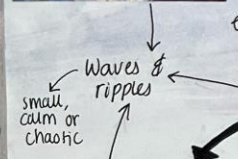 Waves &
ripples
small,
calm or
chaotic